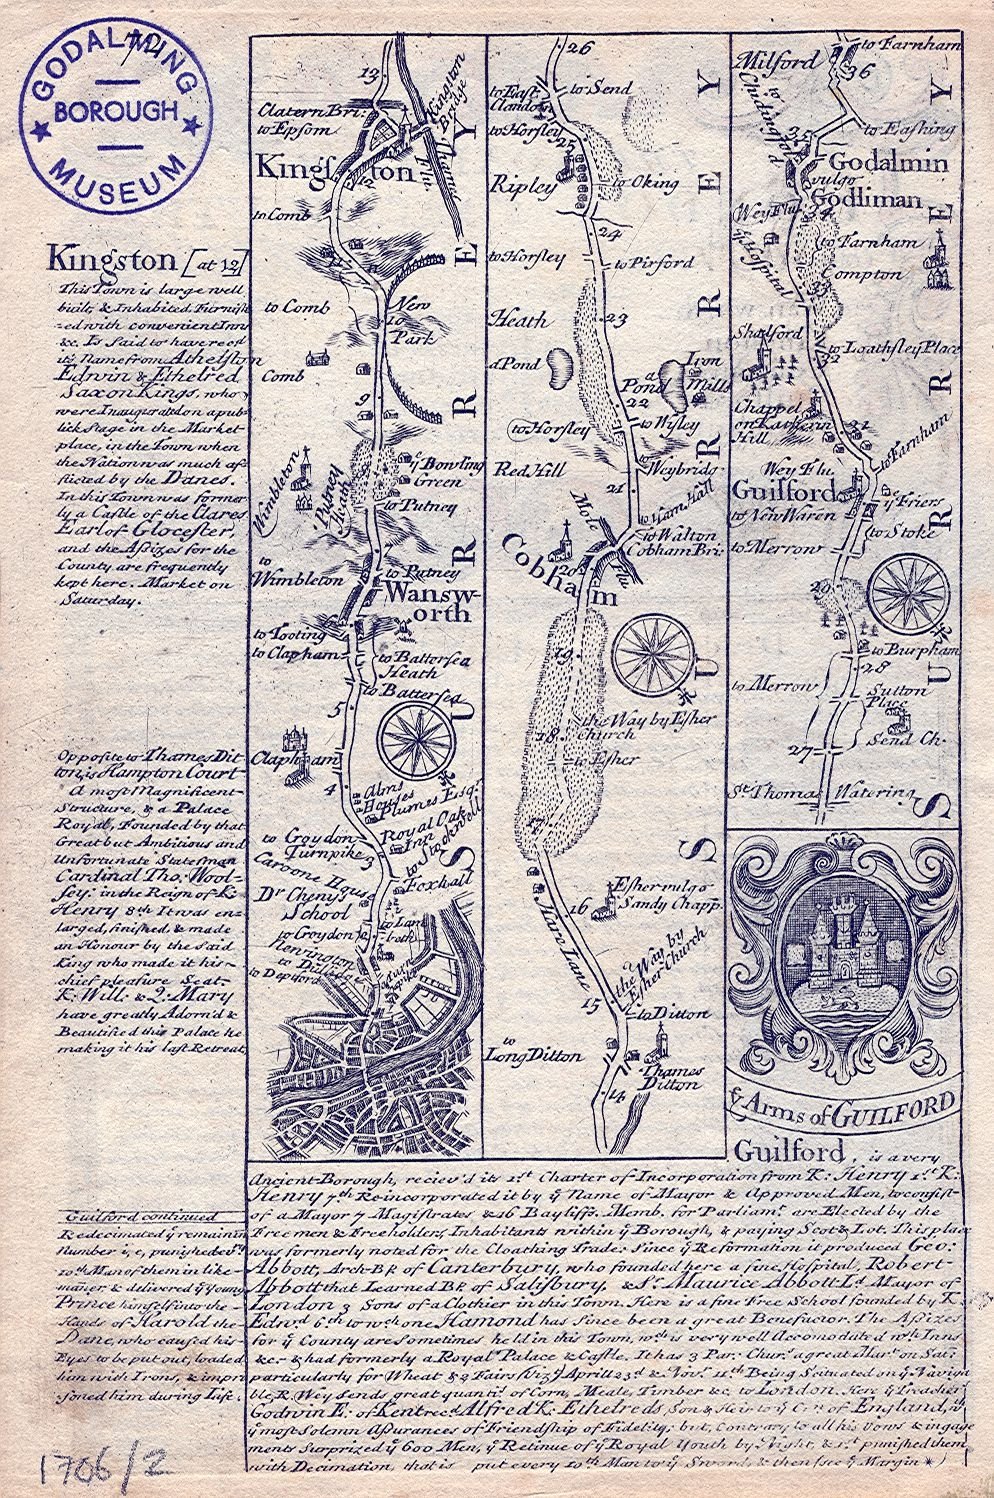 72
GODALMING
BOROUGH
MUSEUM
Kingston [at 12]
This Town is large well
built, & Inhabited, Furnish
=ed with convenient Inns
&c. Is Said to have rec'd
its Name from Athelston
Edwin & Ethelred
Saxon Kings, who
were Inaugurated on a pub
lick Stage in the Market
place, in the Town when
the Nation was much af
flicted by the Danes.
In this Town was former
ly a Castle of the Clares
Earl of Glocester,
and the Assizes for the
County are frequently
kept here. Market on
Saturday.
Opposite to Thames Dit
ton, is Hampton Court
A most Magnificent
Structure, & a Palace
Royal, Founded by that
Great but Ambitious and
Unfortunate Statesman
Cardinal Tho. Wool-
sey: in the Reign of K.
Henry 8th It was en-
larged, finished, & made
an Honour by the said
King who made it his
chief pleasure Seat.
K. Will: & Q: Mary
have greatly Adorn'd &
Beautified this Palace he
making it his last Retreat,
13
Clatern Bri:
to Epsom
Kingston
Bridge
Thames
Flu.
Kingston
12
to Comb
11
to Comb
New
10
Park
Comb
9
Wimbleton
Putney
Heath
ye Bowling
Green
to Putney
7
to
Wimbleton
to Putney
Wansw-
orth
to Tooting
to Clapham
to Battersea
Heath
to Battersea
5
Clapham
4
Alms
Houses
Plumes Esqr.
Royal Oak
Inn
to Stockwell
to Croydon
Turnpike
3
Caroone House
to
Foxhall
Dr Cheny's
School
to Lam
beth
to Croydon
2
Newington
to Dulidge
to Deptford
SURREY
26
to East
Clandon
to Send
to Horsley
25
Ripley
to Oking
24
to Horsley
to Pirford
Heath
23
a Pond
a
Pond
Iron
Mills
22
(to Horsley
to Wisley
Red Hill
Weybridg
21
to Ham Hall
Mole
Flu
to Walton
Cobham Bri:
Cobham
20
19
the Way by Esher
Church
18
to Esher
17
Hare Lane
16
Esher vulgo
Sandy Chapp.
the Way by
Esher Church
15
to Ditton
to
Long Ditton
Thames
Ditton
14
SURREY
Milford
to Farnham
36
to
Chidingfold
35
to Eashing
Godalmin
vulgo
Godliman
Wey Flu.
34
ye Hospital
to Farnham
Compton
33
Shalford
to Loathsley Place
32
Chappel
on Katherin
Hill
31
to Farnham
Wey Flu.
Guilford
ye Friers
to New Waren
to Stoke
to Merrow
29
to Burpham
28
to Merrow
Sutton
Place
Send Ch.
27
St Thomas Watering
SURREY
ye Arms of GUILFORD
Guilford, is a very
Ancient Borough, reciev'd its 1st Charter of Incorporation from K: Henry 1st K:
Henry 7th Reincorporated it by ye Name of Mayor & Approved Men, to consist
of a Mayor 7 Magistrates & 16 Bayliffs. Memb. for Parliamt are Elected by the
Freemen & Freeholders, Inhabitants within ye Borough, & paying Scot & Lot. This place
was formerly noted for the Cloathing Trade: Since ye Reformation it produced Geo:
Abbott, Arch-Bp of Canterbury, who founded here a fine Hospital, Robert
Abbott that Learned Bp of Salisbury, & Sr Maurice Abbott Ld Mayor of
London 3 Sons of a Clothier in this Town. Here is a fine Free School founded by K.
Edwd 6th to wch one Hamond has Since been a great Benefactor. The Assizes
for ye County are Sometimes held in this Town, wch is very well Accomodated wth Inns
&c. & had formerly a Royal Palace & Castle. It has 3 Par: Chur: a great Mart on Sat:
particularly for Wheat & 2 Fairs (viz) April 23d & Novr 11th Being Situated on ye Naviga
ble R. Wey Sends great quanti: of Corn, Meale, Timber &c to London. Here ye Treacher
Godwin E: of Kent recd Alfred K: Ethelreds Son & Heir to ye Crn of England, wth
ye most Solemn Assurances of Friendship of Fidelity; but, Contrary to all his Vows & ingage
ments Surprized ye 600 Men, ye Retinue of ye Royal Youth by Night, & 1st punished them
with Decimation, that is put every 10th Man to ye Sword, & then (see ye Margin *)
Guilford continued
Redecimated ye remaining
Number i, e, punished evry
10th Man of them in like
maner, & delivered ye young
Prince himself into the
Hands of Harold the
Dane, who caused his
Eyes to be put out, loaded
him with Irons, & impri
soned him during Life.
1706/2